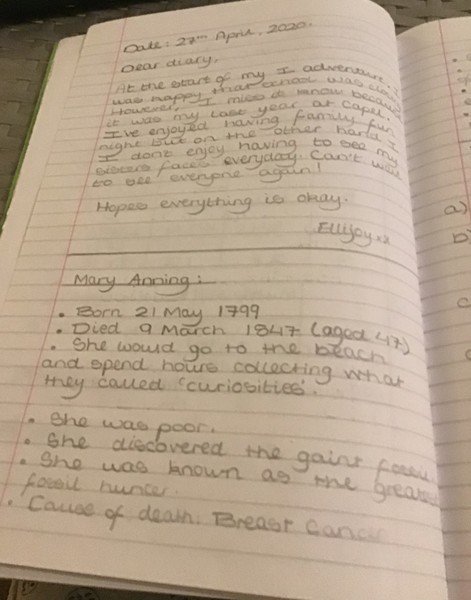 Date: 27th April, 2020.
Dear diary,
At the start of my I adventure, I
was happy that school was
However, I miss it because
it was my last year at Capel.
I've enjoyed having family fun
night but on the other hand I
I don't enjoy having to see my
sisters faces everyday. Can't wait
to see everyone again!
Hopes everything is okay.
Ellijoy xx
Mary Anning:
• Born 21 May 1799
• Died 9 March 1847 (aged 47)
• She would go to the beach
and spend hours collecting what
they called 'curiosities'.
• She was poor.
• She discovered the gaint
• She was known as the
fossil hunter.
• Cause of death: Breast
a)
b)
c